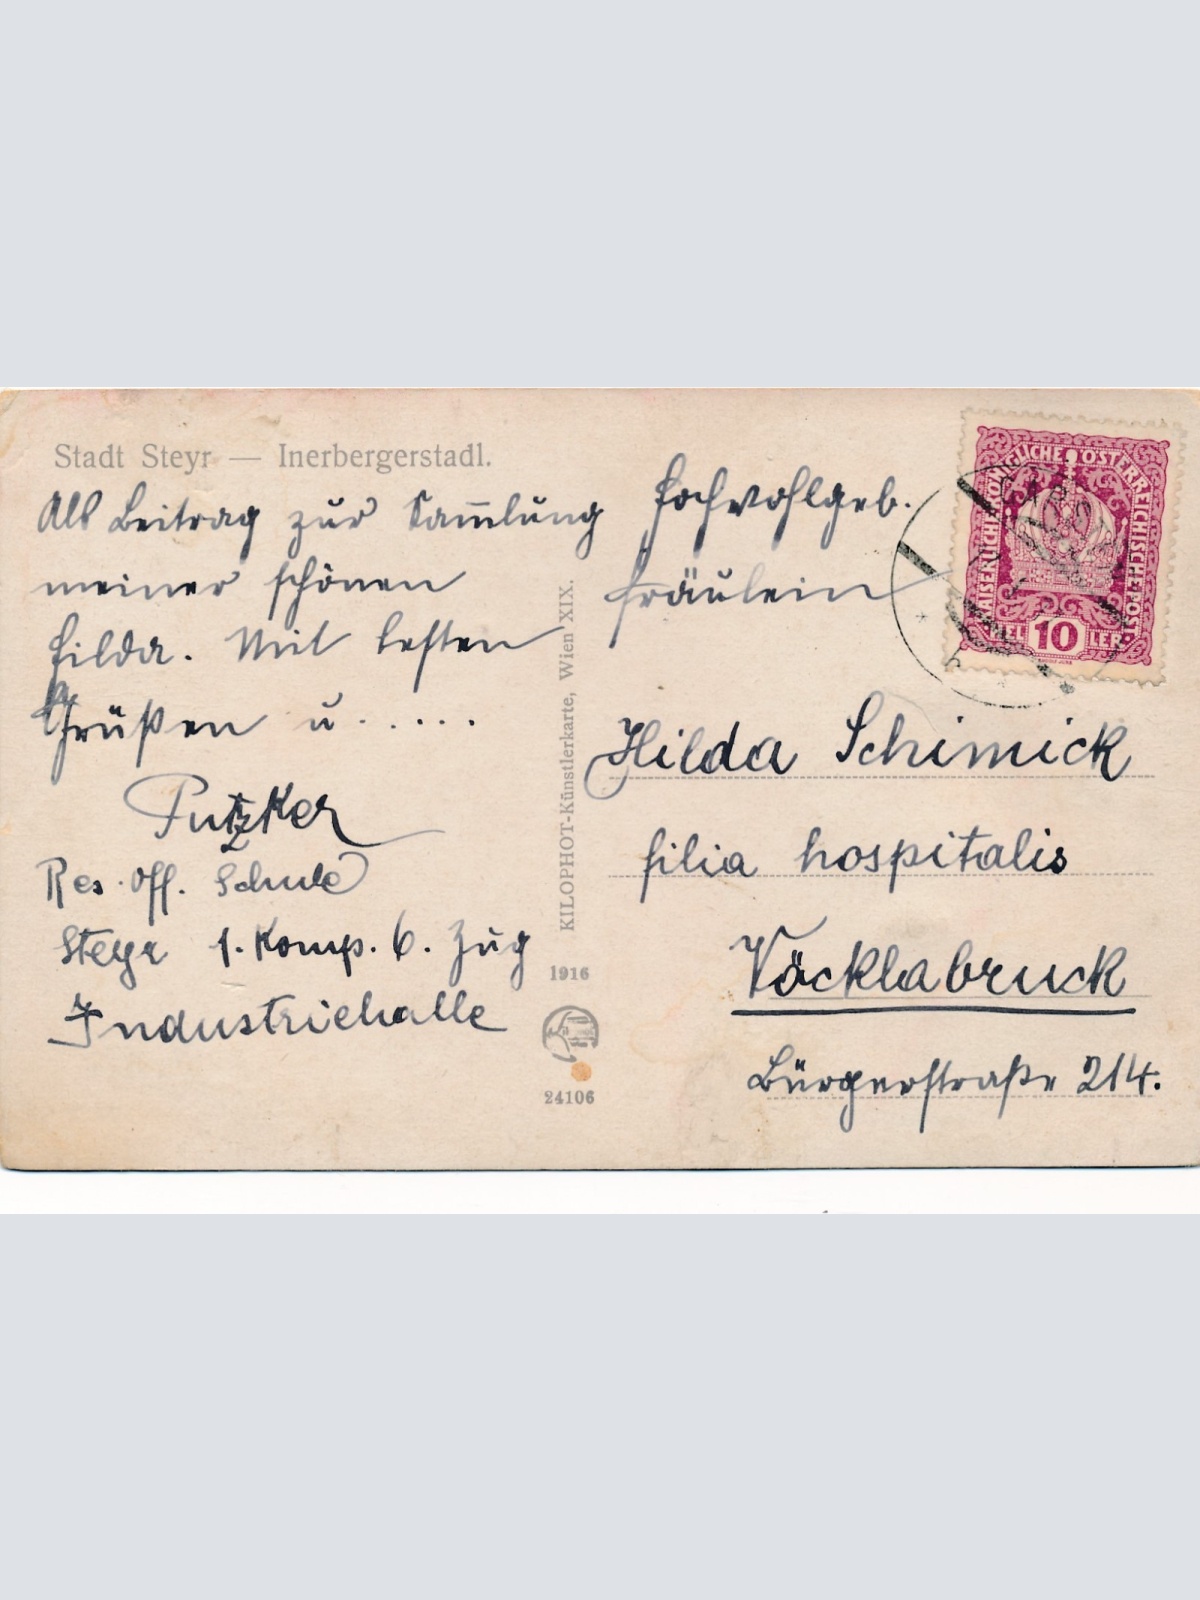 Stadt Steyr — Inerbergerstadl.
Als Beitrag zur Sam̄lung
meiner schönen
Hilda. Mit besten
Grüßen u. . . . . .
Putzker
Res. Off. Schule
Steyr 1. Komp. 6. Zug
Industriehalle
KILOPHOT-Künstlerkarte, Wien XIX.
1916
24106
Hochwohlgeb.
Fräulein
Hilda Schimick
filia hospitalis
Vöcklabruck
Bürgerstraße 214.
KAISERLICHE KÖNIGLICHE ÖSTERREICHISCHE POST
HELLER
10